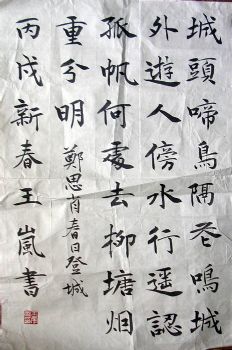 城頭啼鳥隔花鳴城
外遊人傍水行遥認
孤帆何處去柳塘烟
重兮明
鄭思肖春日登城
丙戌新春王嵐書